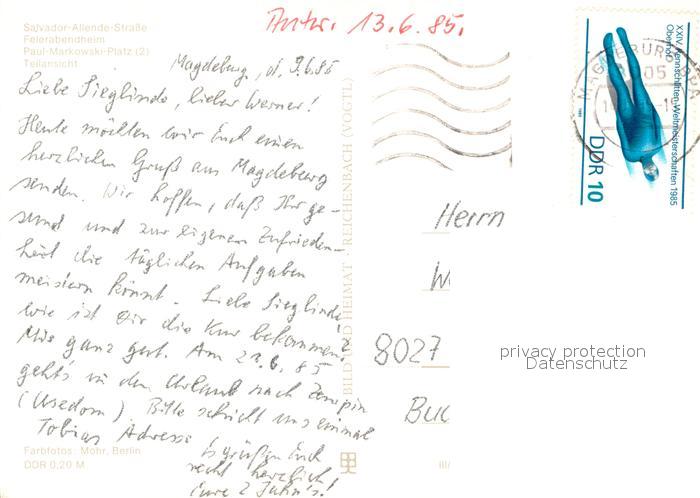 Salvador-Allende-Straße
Feierabendheim
Paul-Markowski-Platz (2)
Teilansicht
Antw. 13.6.85.
Magdeburg, d. 9.6.85
Liebe Sieglinde, lieber Werner!
Heute möchten wir Euch einen
herzlichen Gruß aus Magdeburg
senden. Wir hoffen, daß Ihr ge-
sund und zur eigenen Zufrieden-
heit die täglichen Aufgaben
meistern könnt. Liebe Sieglinde
wie ist Dir die Kur bekommen?
Mir ganz gut. Am 29.6.85
geht's in den Urlaub nach Zempin
(Usedom) Bitte schickt uns einmal
Tobias Adresse
Es grüßen Euch
recht herzlich!
Eure 2 Jahn's!
Farbfotos: Mohr, Berlin
DDR 0,20 M
BILD UND HEIMAT · REICHENBACH (VOGTL)
III/
XXIV. Rennschlitten-Weltmeisterschaften 1985
Oberhof
DDR 10
1985
MAGDEBURG
Herrn
W
8027
privacy protection
Datenschutz